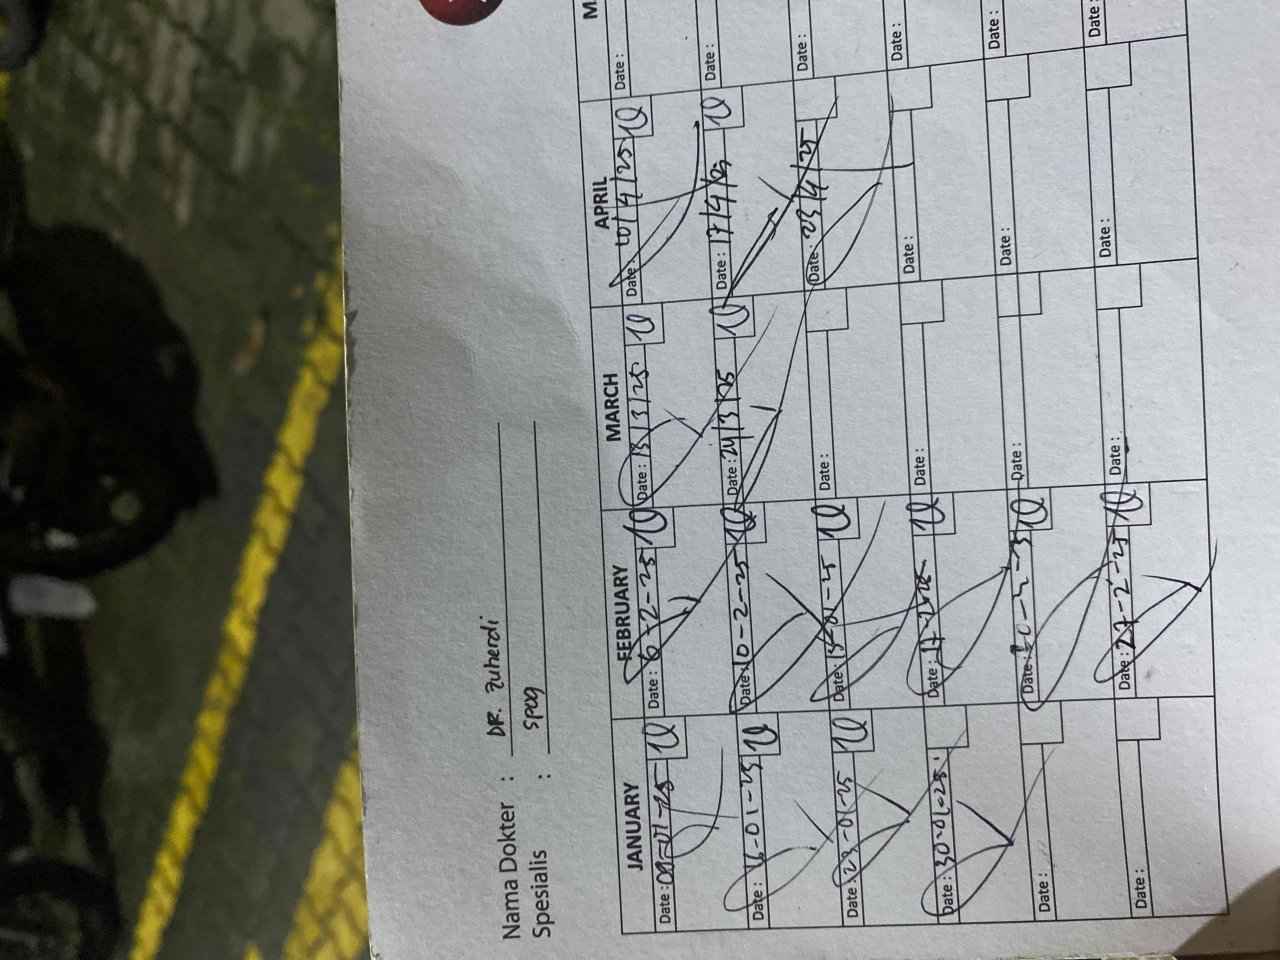 Nama Dokter : DR. Zuherdi
Spesialis : SPOG
JANUARY FEBRUARY MARCH APRIL M
Date : 09-01-25 10 Date : 6-2-25 10 Date : 13/3/25 10 Date : 10/4/25 10 Date :
Date : 16-01-25 10 Date : 10-2-25 10 Date : 24/3/25 10 Date : 17/4/25 10 Date :
Date : 23-01-25 10 Date : 10 Date : Date : 23/4/25 Date :
Date : 30-01-25 Date : 10 Date : Date : Date :
Date : Date : 10 Date : Date : Date :
Date : Date : 27-2-25 10 Date : Date : Date :